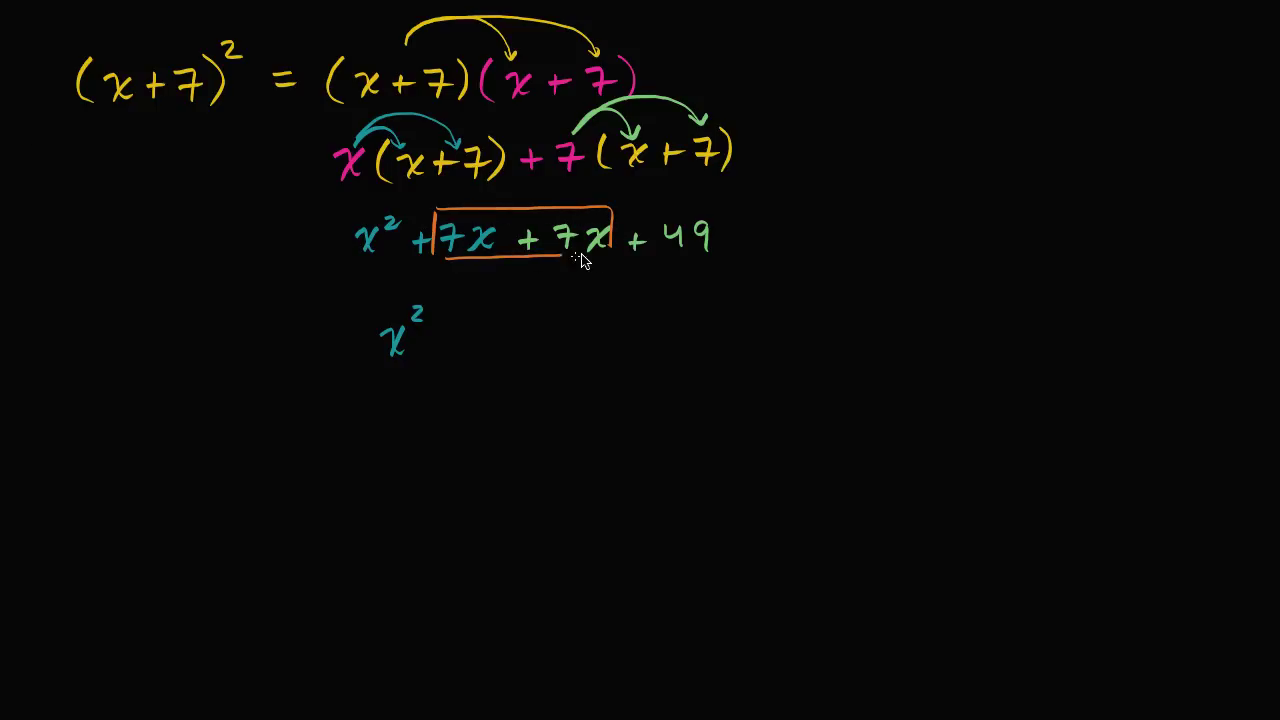 (x+7)² = (x+7)(x+7)
x(x+7) + 7(x+7)
x² + 7x + 7x + 49
x²